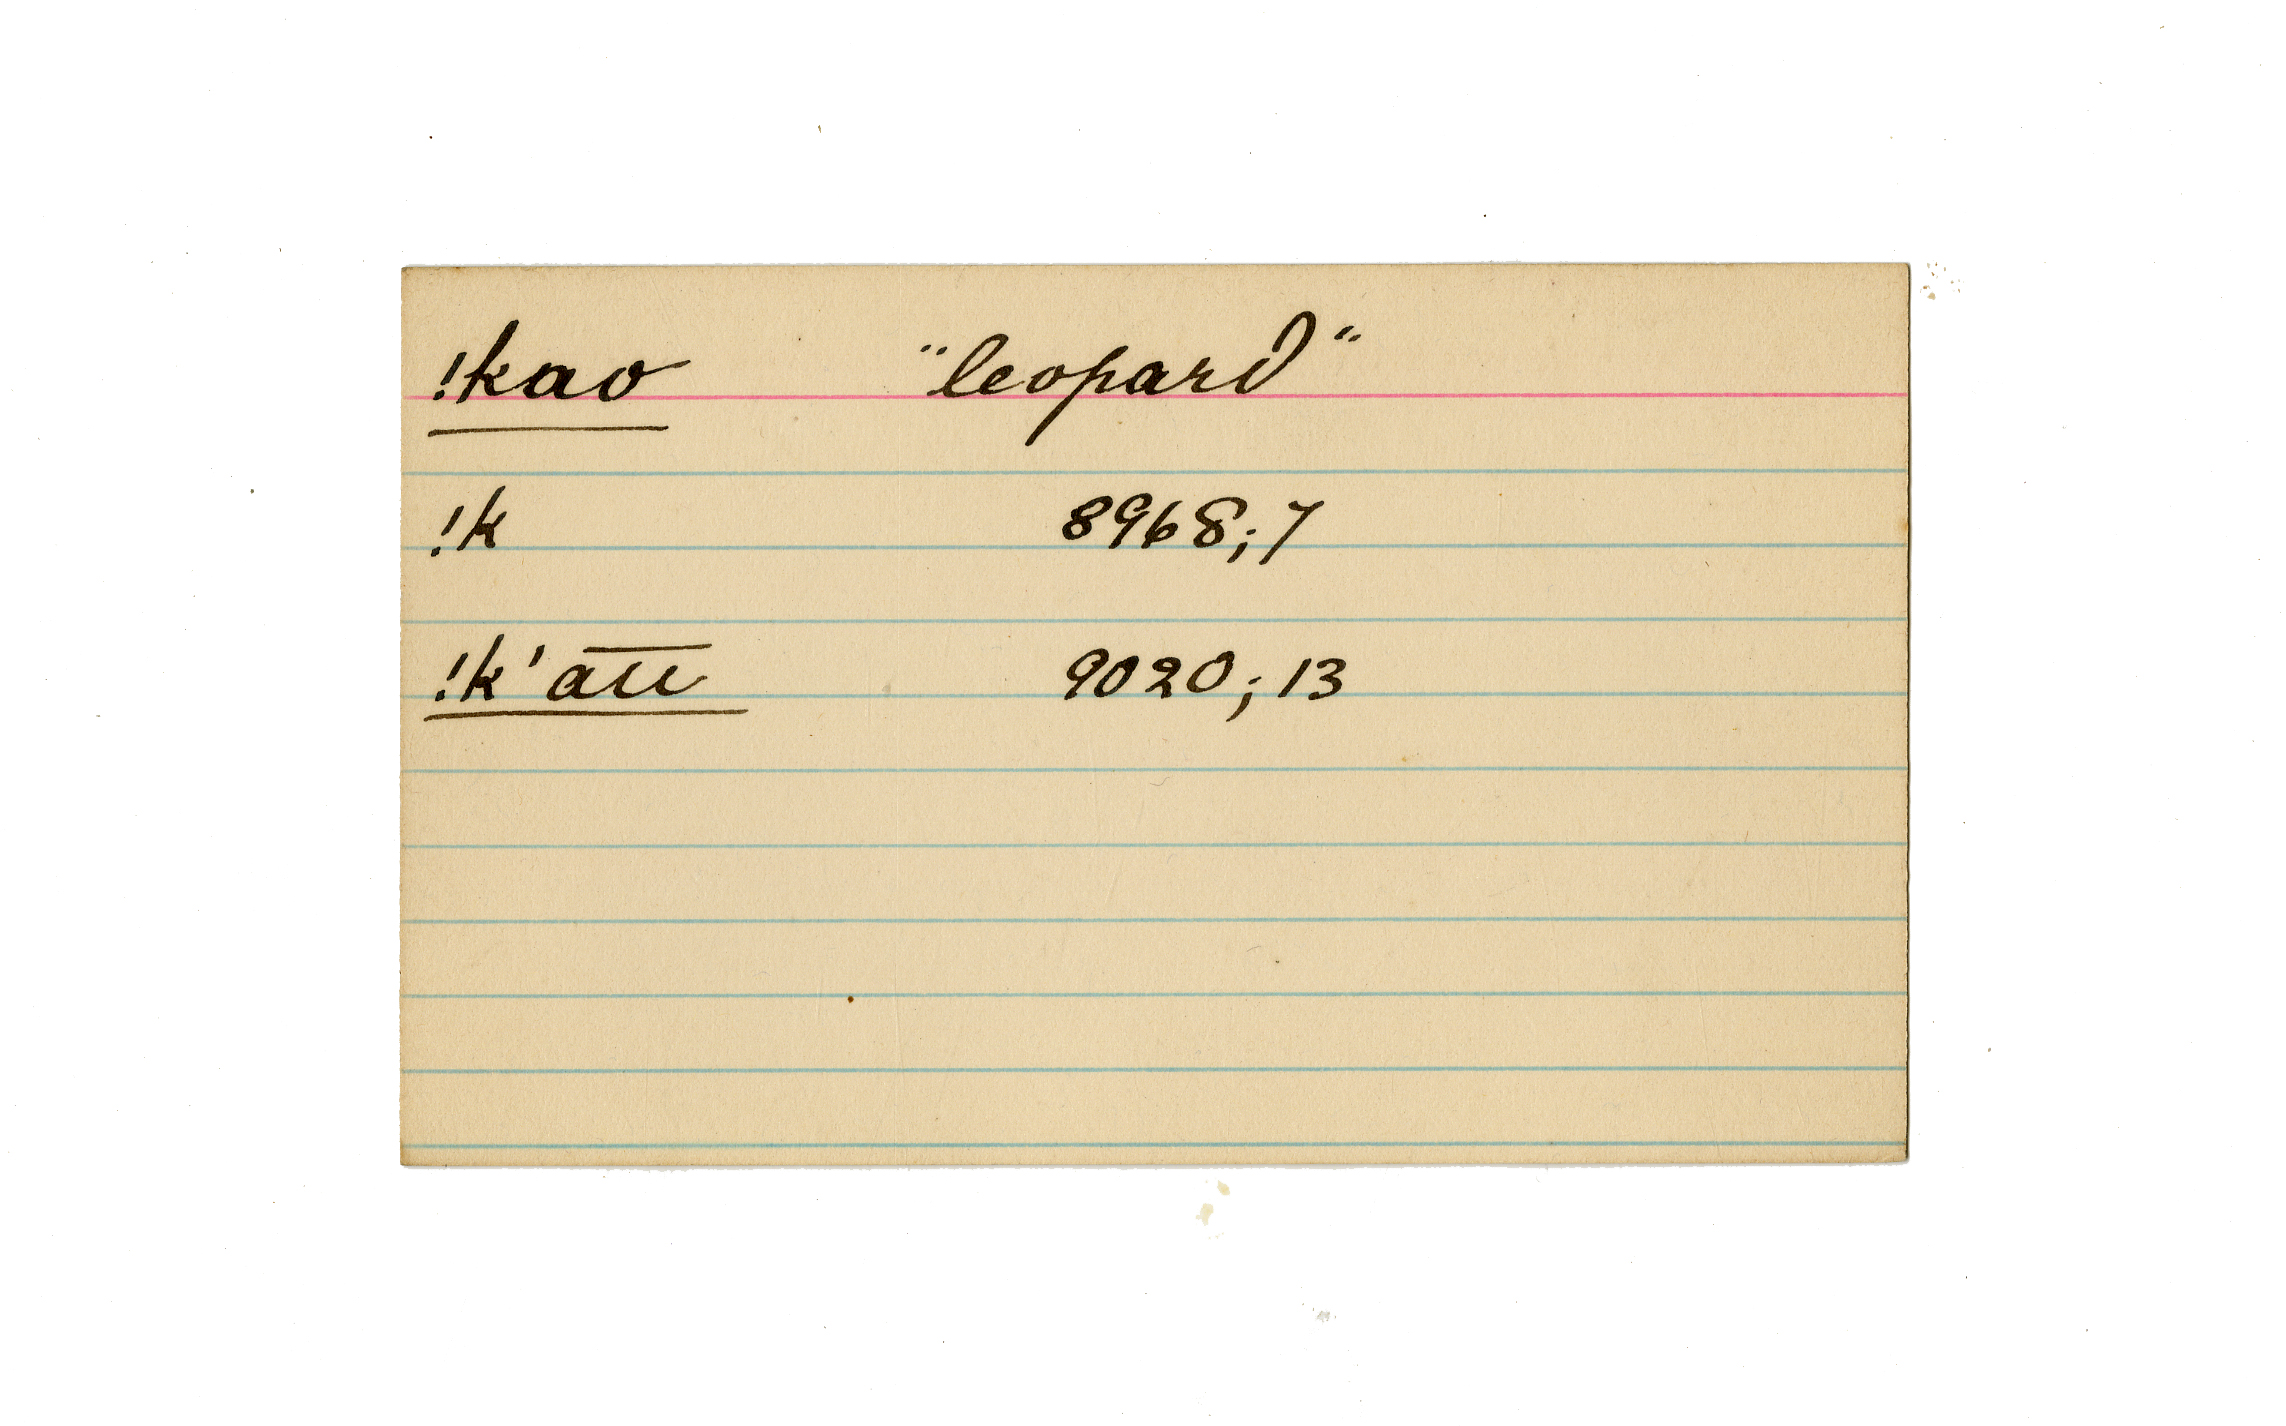 !kao "leopard"
!k 8968;7
!k'a͞u 9020;13